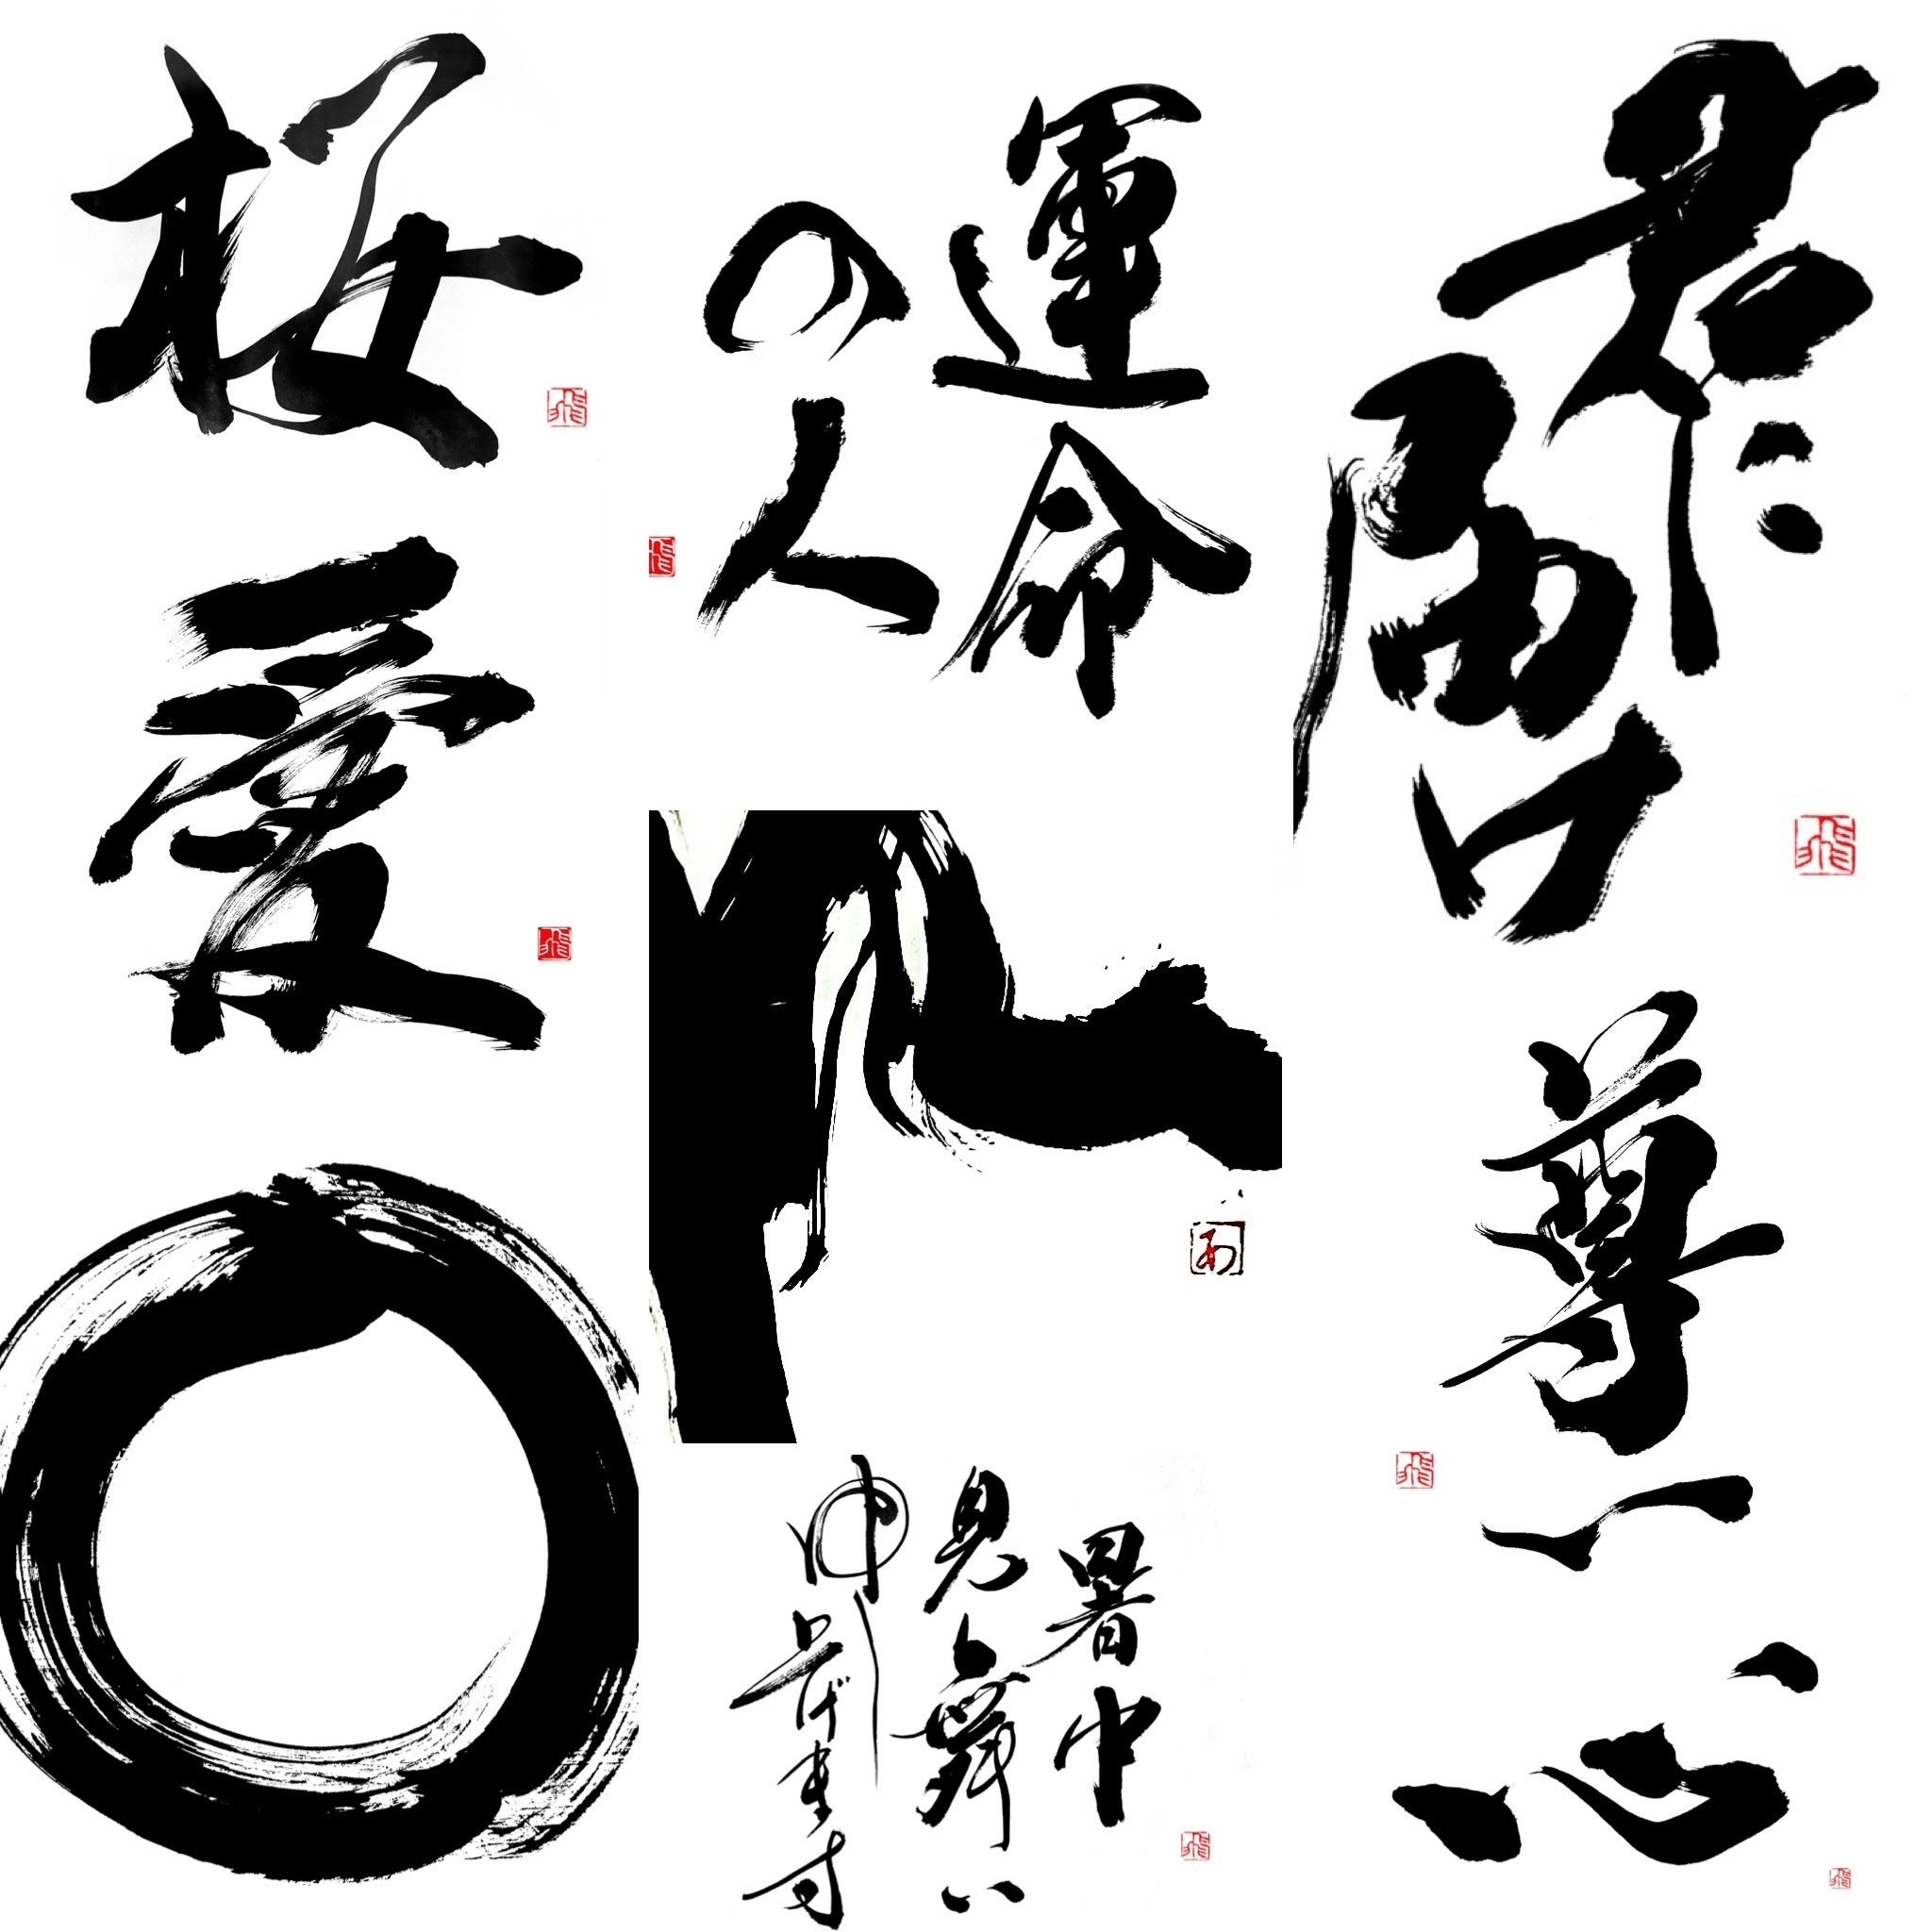 桜
運命
の人
君に
届け
愛
尊
一心
暑中
見舞い
申し上げます